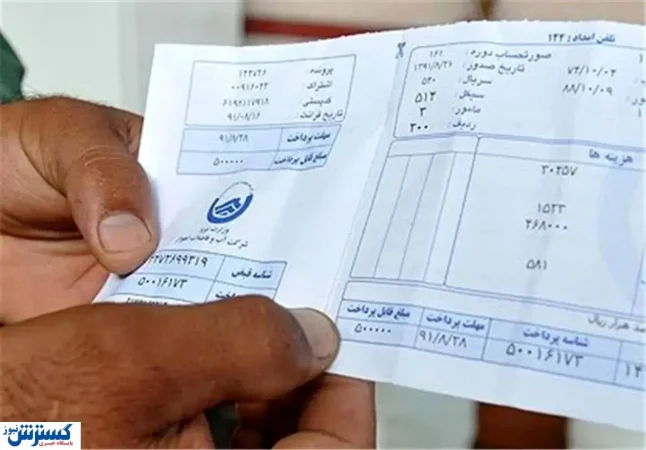 تلفن امداد: ۱۲۲
صورتحساب دوره: ۱۶۱
تاریخ صدور: ۱۳۹۱/۸/۲۱
سریال: ۵۳۰
سیکل: ۵۱۴
مامور: ۳
ردیف: ۳۰۰
۷۴/۱۰/۰۳
۸۸/۱۰/۰۹
هزینه ها
۳۰۲۵۷
۱۵۲۳
۴۶۸۰۰۰
۵۸۱
هزار ریال
شناسه پرداخت
مهلت پرداخت
مبلغ قابل پرداخت
۵۰۰۱۶۱۷۳
۹۱/۸/۲۸
۵۰۰۰۰۰
پرونده: ۱۲۳۷۲۶
اشتراک: ۰۰۹۱۶۰۲۳
کدپستی: ۶۱۹۸۱۱۷۹۱۸
تاریخ قرائت: ۹۱/۰۸/۱۶
مهلت پرداخت
۹۱/۸/۲۸
مبلغ قابل پرداخت
۵۰۰۰۰۰
وزارت نیرو
شرکت آب و فاضلاب اهواز
شناسه قبض
۲۷۳۶۹۹۳۱۹
شناسه پرداخت
۵۰۰۱۶۱۷۳
گسترش نیوز
پایگاه خبری